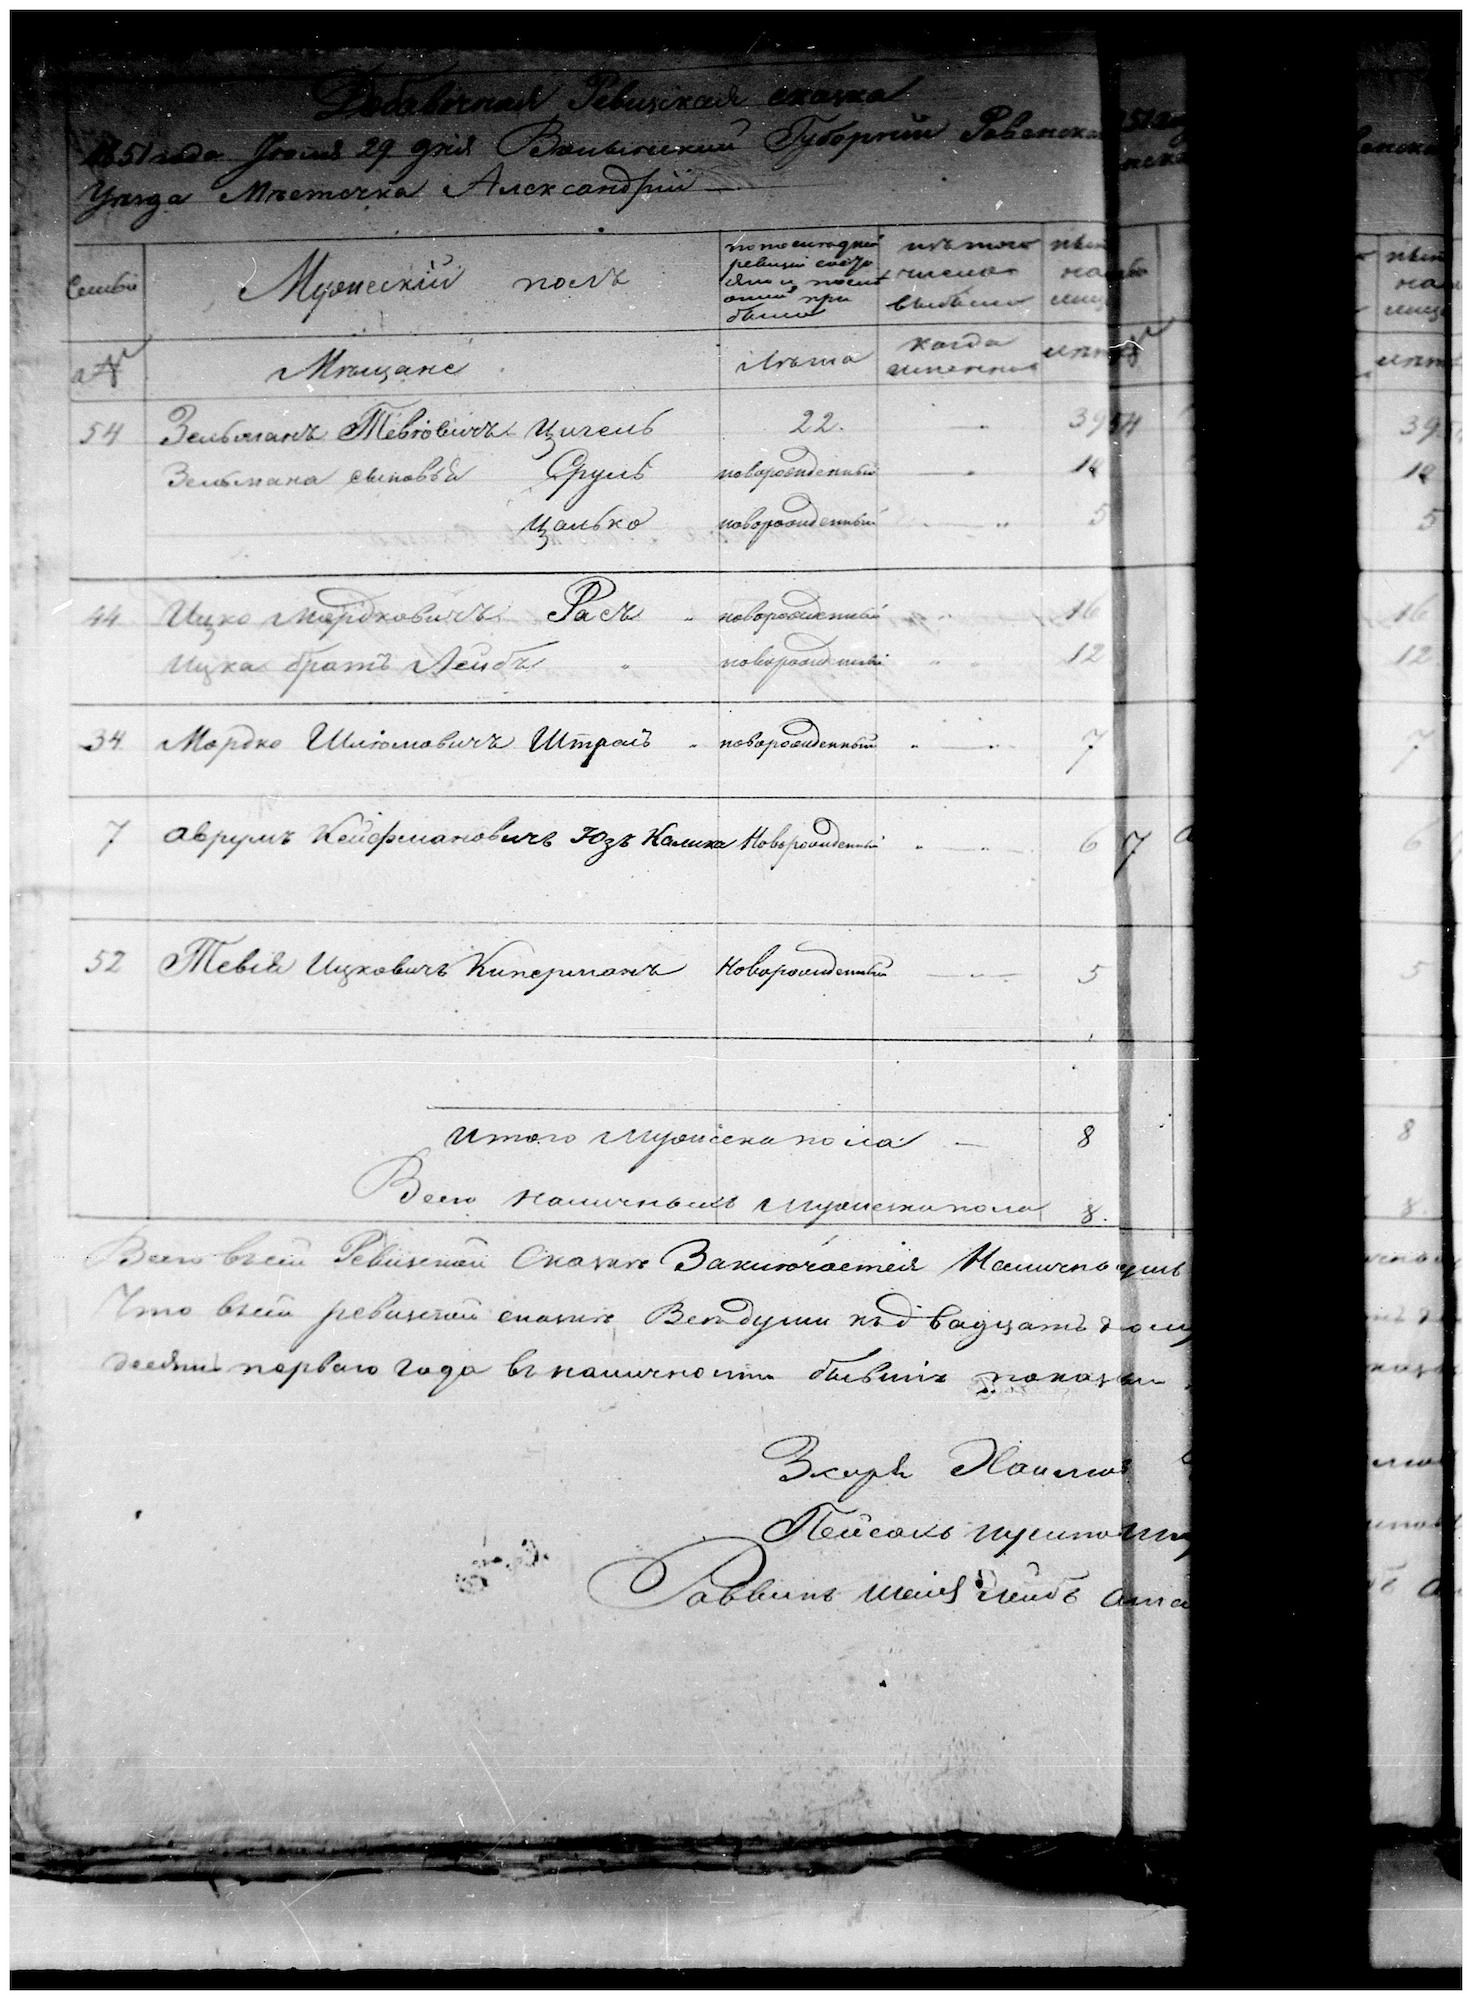 Добавочная Ревизская сказка
1851 года Июля 29 дня Волынской Губернии Ровенска
Уезда Местечка Александрии
Семьи
Мужеский полъ
по последней ревизии состояло и после оной прибыло
изъ того числа выбыло
ныне на лицо
№
Мещане
Лета
когда именно
лета
54 Зельманъ Тевiовичъ Цигель 22. 39
Зельмана сыновья Сруль новорожденный
Цалько новорожденный 5
44 Ицко Мордковичъ Расъ новорожденный 16
Ицка братъ Лейбъ новорожденный 12
34 Мордко Шлiомовичъ Штрай новорожденный 7
7 Аврумъ Кейфмановичъ Юзъ Калика Новорожденный 6
52 Тевiя Ицковичъ Киперманъ Новорожденный 5
Итого Мужеска пола 8
Всего наличныхъ Мужеска пола 8.
Всего въсей Ревизской Сказке Заключается Налично душъ
Что въсей ревизской сказке Все души къ двадцать
десятъ перваго года въ наличности бывшiе показаны
Пейсахъ
Раввинъ Лейбъ